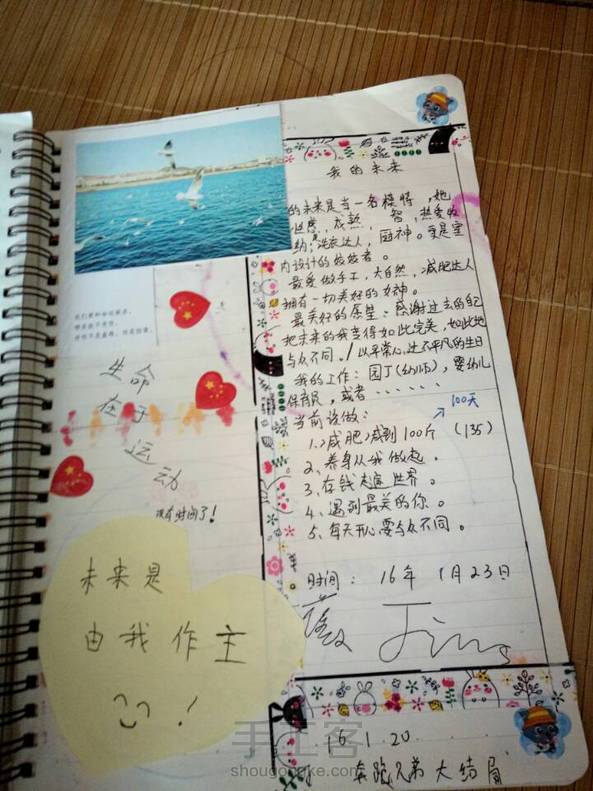 我的未来
的未来是当一名模特,她
成熟, 智, 热爱收
纳,洗衣达人,厨神。更是室
内设计的佼佼者。
最爱做手工,大自然,减肥达人
拥有一切美好的女神。
最美好的愿望:感谢过去的自己
把未来的我变得如此完美,如此地
与众不同。以平常心,过不平凡的生日
我的工作:园丁(幼师),婴幼儿
保育员,或者······
100天
当前该做:
1.减肥减到100斤 (135)
2、养身从我做起。
3、存钱走遍世界。
4、遇到最美的你。
5、每天开心要与众不同。
时间: 16年 1月23日
薇 Jing
16.1.20
奔跑兄弟大结局
生命
在于
运动
没有时间了!
未来是
由我作主
!
手工客
shougongke.com